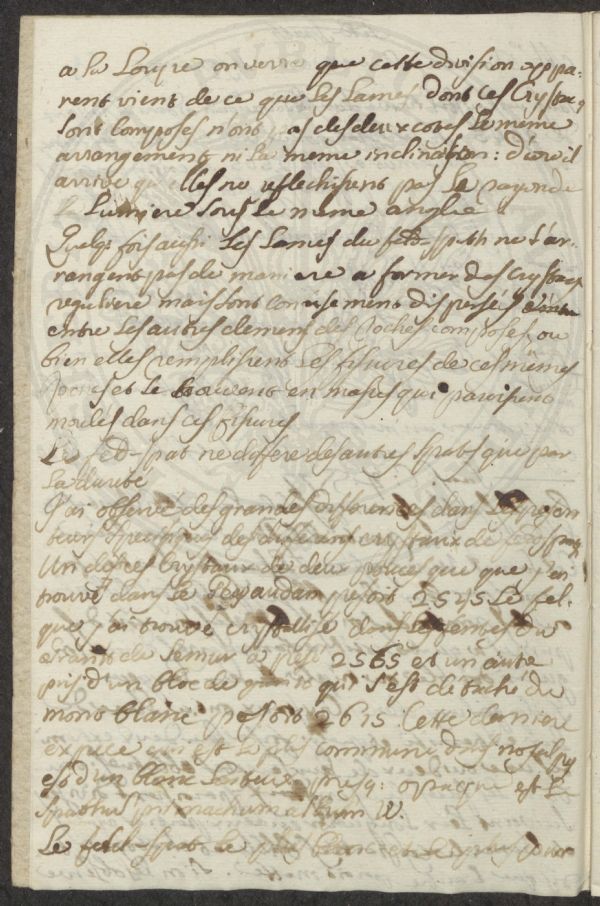 a la Loupe on verra que cette division appa-
rente vient de ce que les Lames dont ces Crystaux
sont Composés n'ont pas des deux cotés le meme
arrangement ni la meme inclinaison: d'ou il
arrive qu'elles ne reflechissent pas le rayon de
la Lumiere sous le meme angle
Quelq fois aussi les Lames du feld-spath ne s'ar-
rangent pas de maniere a former des crystaux
reguliers mais sont confusement dispersés
entre les autres elemens des roches composées, ou
bien elles remplissent les fissures de ces mêmes
roches et se trouvent en masses qui paroissent
moulées dans ces fissures
Le feld-spat ne differe des autres spaths que par
sa dureté
J'ai observé des grandes differences dans la pesan
teur specifique des differens crystaux de feldspath
Un de ces Crystaux de deux pouces que j'ai
trouvé dans le pesoit 2545 Le fel-
que j'ai trouvé crystallisé dans les fentes du
granit de Semur a pesé 2565 et un autre
pris d'un bloc de granit qui s'est detaché du
mont blanc pesoit 2615 Cette derniere
espece qui est la plus commune dans nos alpes
est d'un blanc presq: opaque est le
spathum album W.
Le feld-spat le plus blanc et le plus